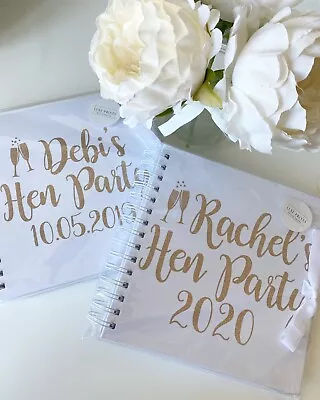 Debi's
Hen Party
10.05.2019
Rachel's
Hen Party
2020